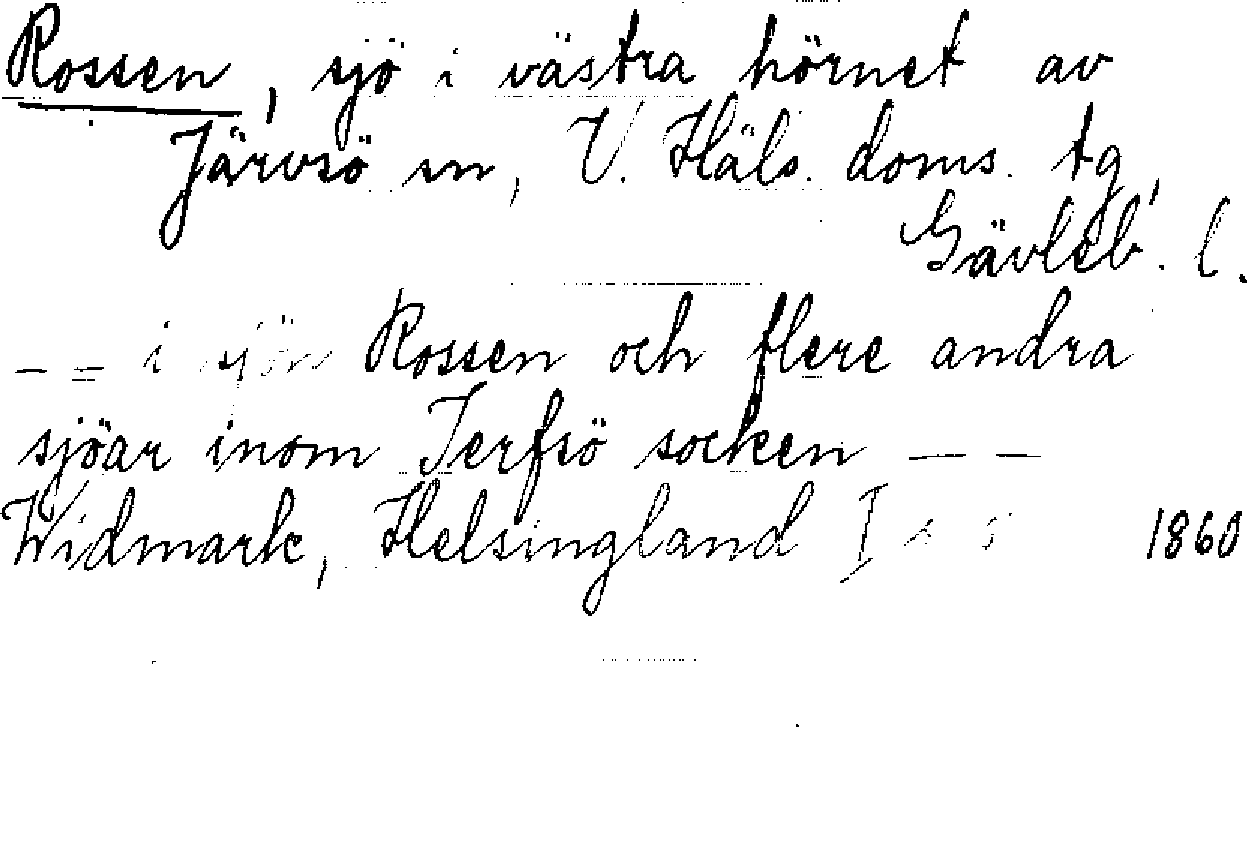 Rossen, sjö i västra hörnet av
Järvsö sn, V. Häls. doms. tg,
Gävleb. l.
— — i sjön Rossen och flere andra
sjöar inom Jerfsö socken — —
Widmark, Helsingland I s 1860